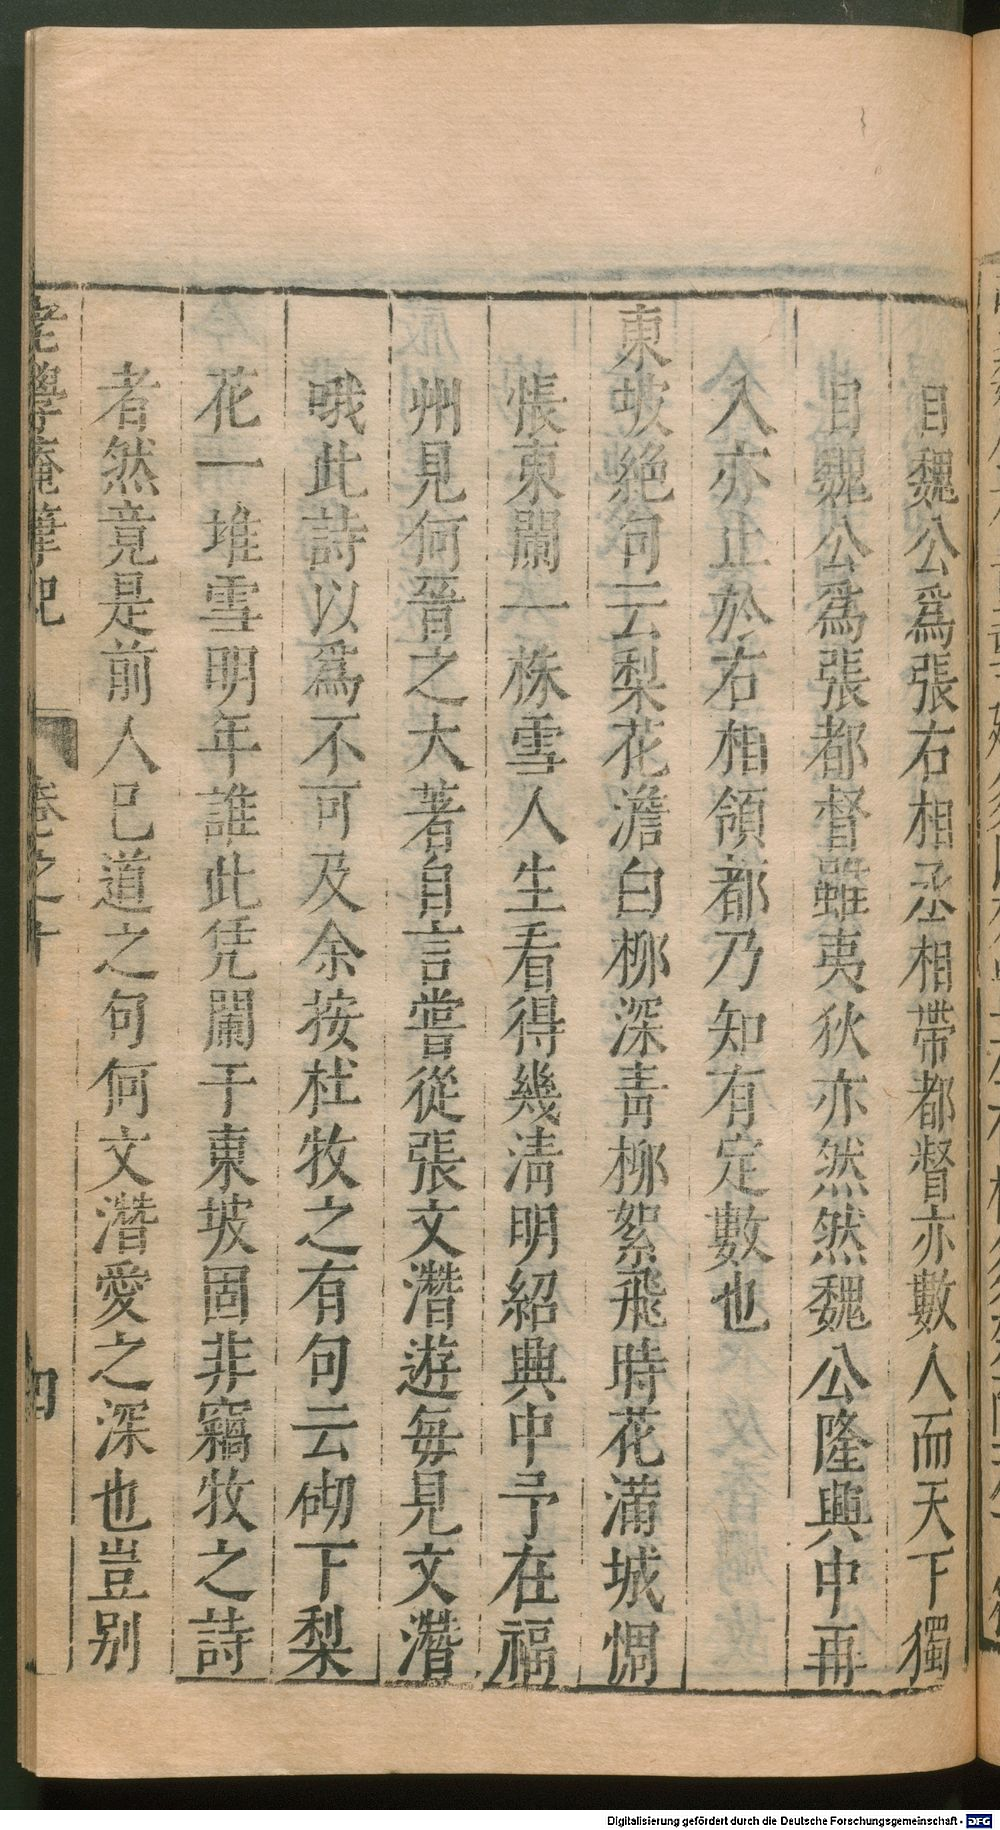 目魏公爲張右相丞相帶都督亦數人而天下獨
目魏公爲張都督雖夷狄亦然然魏公隆興中再
入亦止於右相領都乃知有定數也
東坡絶句云梨花澹白柳深青柳絮飛時花滿城惆
悵東闌一株雪人生看得幾清明紹興中予在福
州見何晉之大著自言嘗從張文潛遊每見文潛
哦此詩以爲不可及余按杜牧之有句云砌下梨
花一堆雪明年誰此凭闌干東坡固非竊牧之詩
者然竟是前人已道之句何文潛愛之深也豈别
老學庵筆記
卷之十
四
Digitalisierung gefördert durch die Deutsche Forschungsgemeinschaft - DFG